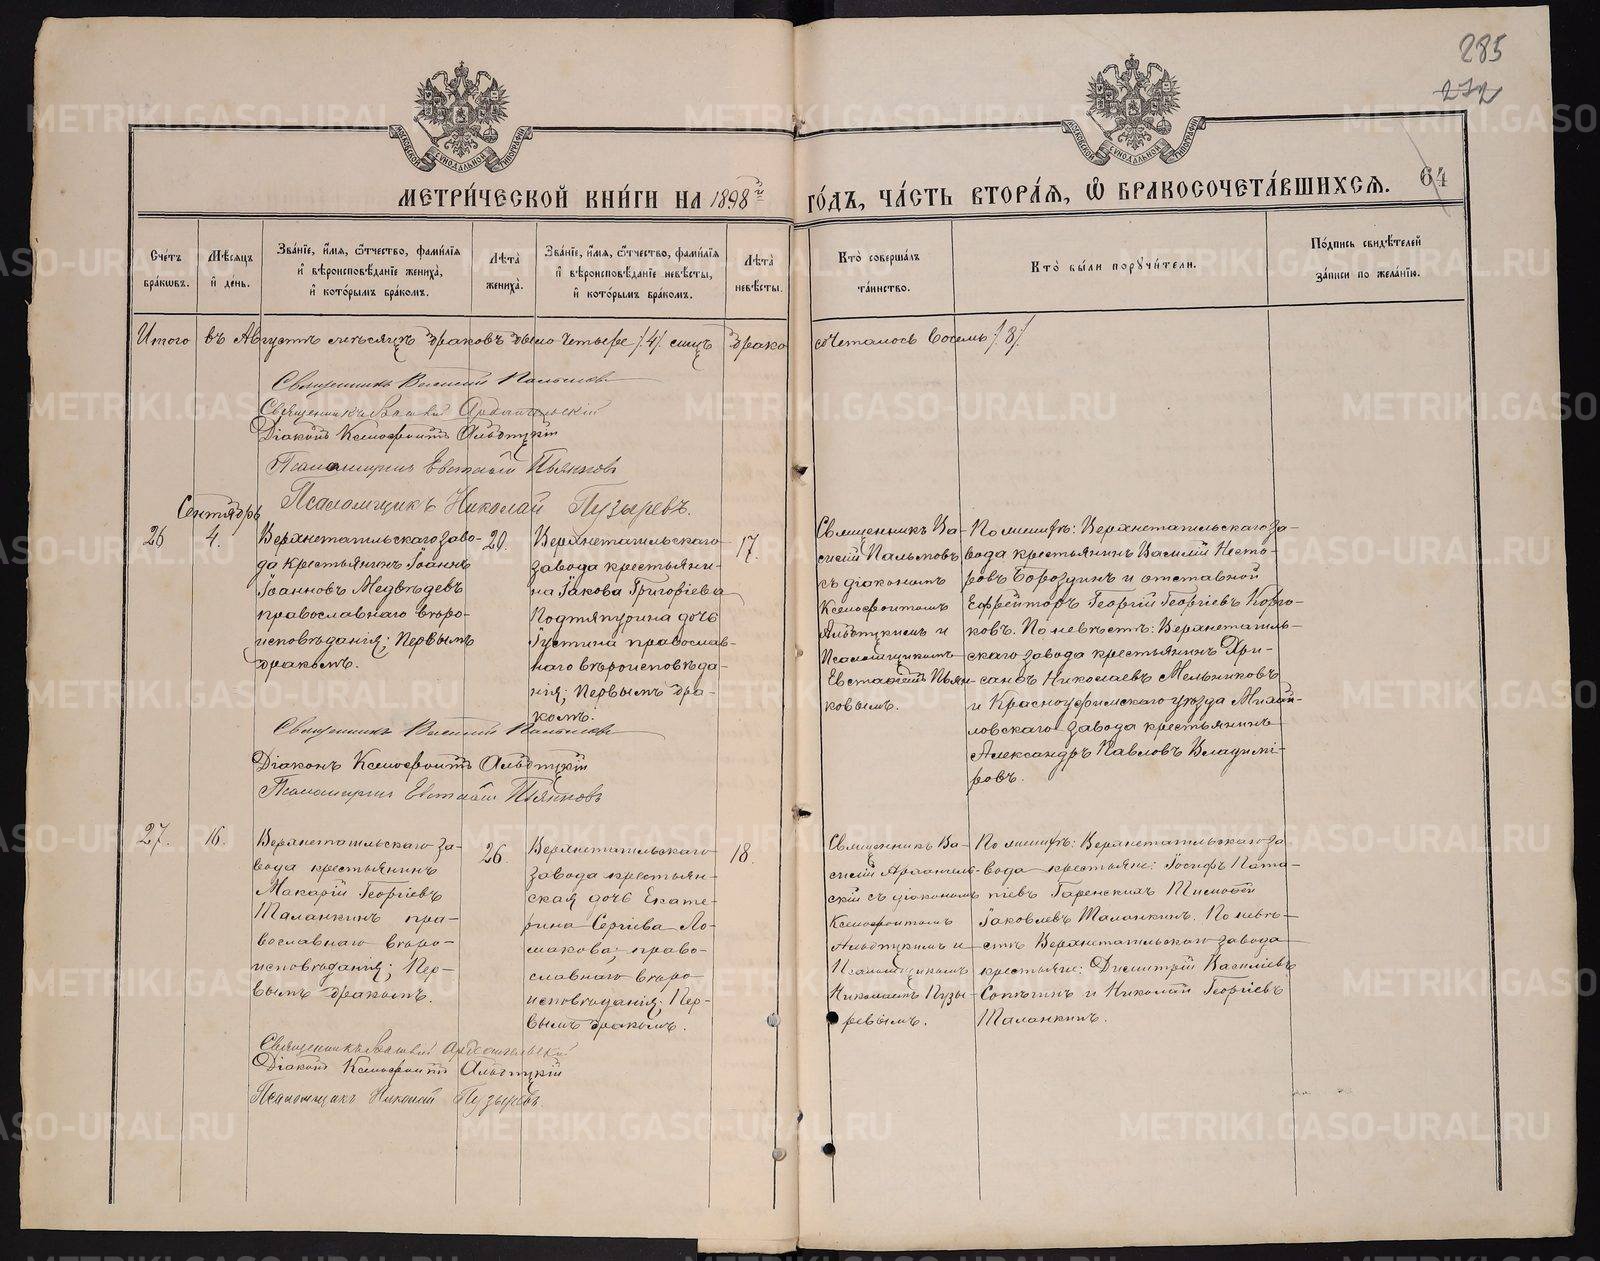 285
272
64
МОСКОВСКОЙ СУНОДАЛЬНОЙ ТИПОГРАФІИ
МОСКОВСКОЙ СУНОДАЛЬНОЙ ТИПОГРАФІИ
МЕТРИ́ЧЕСКОЙ КНИ́ГИ НА 1898 й ГО́ДЪ, ЧА́СТЬ ВТОРА́Я, Ѡ БРАКОСОЧЕТА́ВШИХСЯ.
Сче́тъ бра́кѡвъ.
Мѣ́сяцъ и҆ де́нь.
Зва́нїе, и҆́мя, ѻ҆́тчество, фами́лїя и҆ вѣроисповѣ́данїе жениха̀, и҆ кото́рымъ бра́комъ.
Лѣта̀ жениха̀.
Зва́нїе, и҆́мя, ѻ҆́тчество, фами́лїя и҆ вѣроисповѣ́данїе невѣ́сты, и҆ кото́рымъ бра́комъ.
Лѣта̀ невѣ́сты.
Кто̀ соверша́лъ та́инство.
Кто̀ бы́ли порꙋчи́тели.
По́дпись свидѣ́телей за́писи по жела́нїю.
Итого въ Августѣ мѣсяцѣ браковъ было четыре /4/ лицъ брако сочеталось восемь /8/
Священникъ Василій Пальмовъ
Священникъ Василій Архангельскій
Діаконъ Ксенофонтъ
Псаломщикъ Евстафій Пьянковъ
Псаломщикъ Николай Пузыревъ.
Сентябрь
26
4.
Верхнетагильскаго заво-
да крестьянинъ Іоаннъ
Іоанновъ Медвѣдевъ
православнаго вѣро-
исповѣданія; первымъ
бракомъ.
20.
Верхнетагильскаго
завода крестьяни-
на Іакова Григоріева
Подтяпурина дочь
Іустина православ-
наго вѣроисповѣда-
нія; первымъ бра-
комъ.
17.
Священникъ Ва-
силій Пальмовъ
съ діакономъ
Ксенофонтомъ
и
Псаломщикомъ
Евстафіемъ Пьян-
ковымъ.
По женихѣ: Верхнетагильскаго за-
вода крестьянинъ Василій Несто-
ровъ Бороздинъ и отставной
Ефрейторъ Георгій Георгіевъ
По невѣстѣ: Верхнетагиль-
скаго завода крестьянинъ Хри-
санфъ Николаевъ Мельниковъ
и Красноуфимскаго уѣзда Михай-
ловскаго завода крестьянинъ
Александръ Павловъ Владимі-
ровъ.
Священникъ Василій Пальмовъ
Діаконъ Ксенофонтъ
Псаломщикъ Евстафій Пьянковъ
27.
16.
Верхнетагильскаго за-
вода крестьянинъ
Макарій Георгіевъ
Маланкинъ пра-
вославнаго вѣро-
исповѣданія; пер-
вымъ бракомъ.
26.
Верхнетагильскаго
завода крестьян-
ская дочь Екате-
рина Сергіева Ло-
макова; право-
славнаго вѣро-
исповѣданія; пер-
вымъ бракомъ.
18.
Священникъ Ва-
силій Архангель-
скій съ діакономъ
Ксенофонтомъ
и
Псаломщикомъ
Николаемъ Пузы-
ревымъ.
По женихѣ: Верхнетагильскаго за-
вода крестьяне: Іосифъ
Тимофей
Іаковлевъ Маланкинъ. По невѣ-
стѣ Верхнетагильскаго завода
крестьяне: Димитрій Василіевъ
и Николай Георгіевъ
Маланкинъ.
Священникъ Василій Архангельскій
Діаконъ Ксенофонтъ
Псаломщикъ Николай Пузыревъ
METRIKI.GASO-URAL.RU